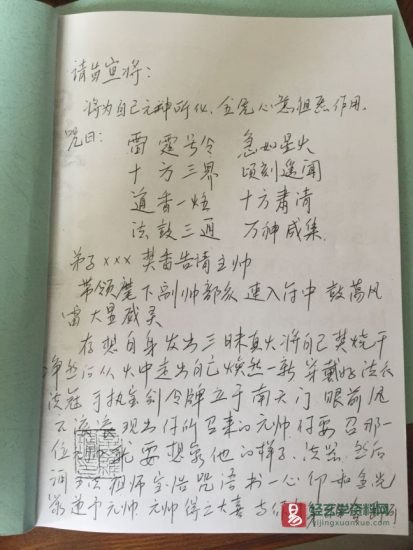 请苗宣将:
将为自己元神所化、全凭心意组炁作用.
咒曰: 雷霆号令 急如星火
十方三界 顷刻遥闻
道香一炷 十方肃清
法鼓三通 万神咸集.
弟子xxx 焚香告请主帅
带领麾下副帅部众 速入符中 鼓荡风
雷大显威灵
存想自身发出三昧真火将自己焚烧干
净然后从火中走出自己焕然一新 穿戴好法衣
法冠 手执宝剑令牌 立于南天门 眼前
现出付所召来的元帅 付要召那
一位 就要想象他的样子、法器、然后
祖师宝诰 咒语 书一心 金光
元帅 元帅得之大喜
易
轻玄学资料网
qijingxuanxue.com